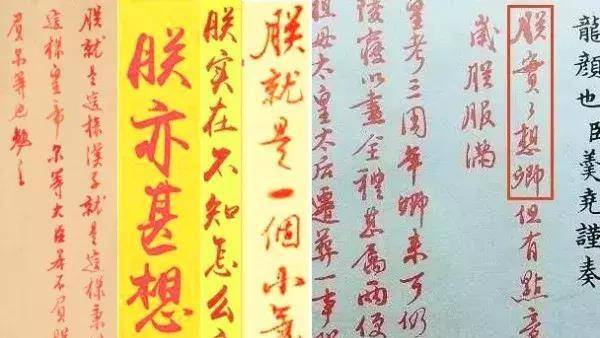 龍顏也臣羹堯謹奏
朕實々想卿但有點意
歲朕服滿
皇考三周年卿來可仍
陵寢以盡全禮甚屬兩便
祖母太皇太后遷葬一事
朕就是一個小
朕实在不知怎么
朕亦甚想
朕就是這樣漢子就是這樣秉
這樣皇帝尔等大臣若不負朕
負尔等也勉之